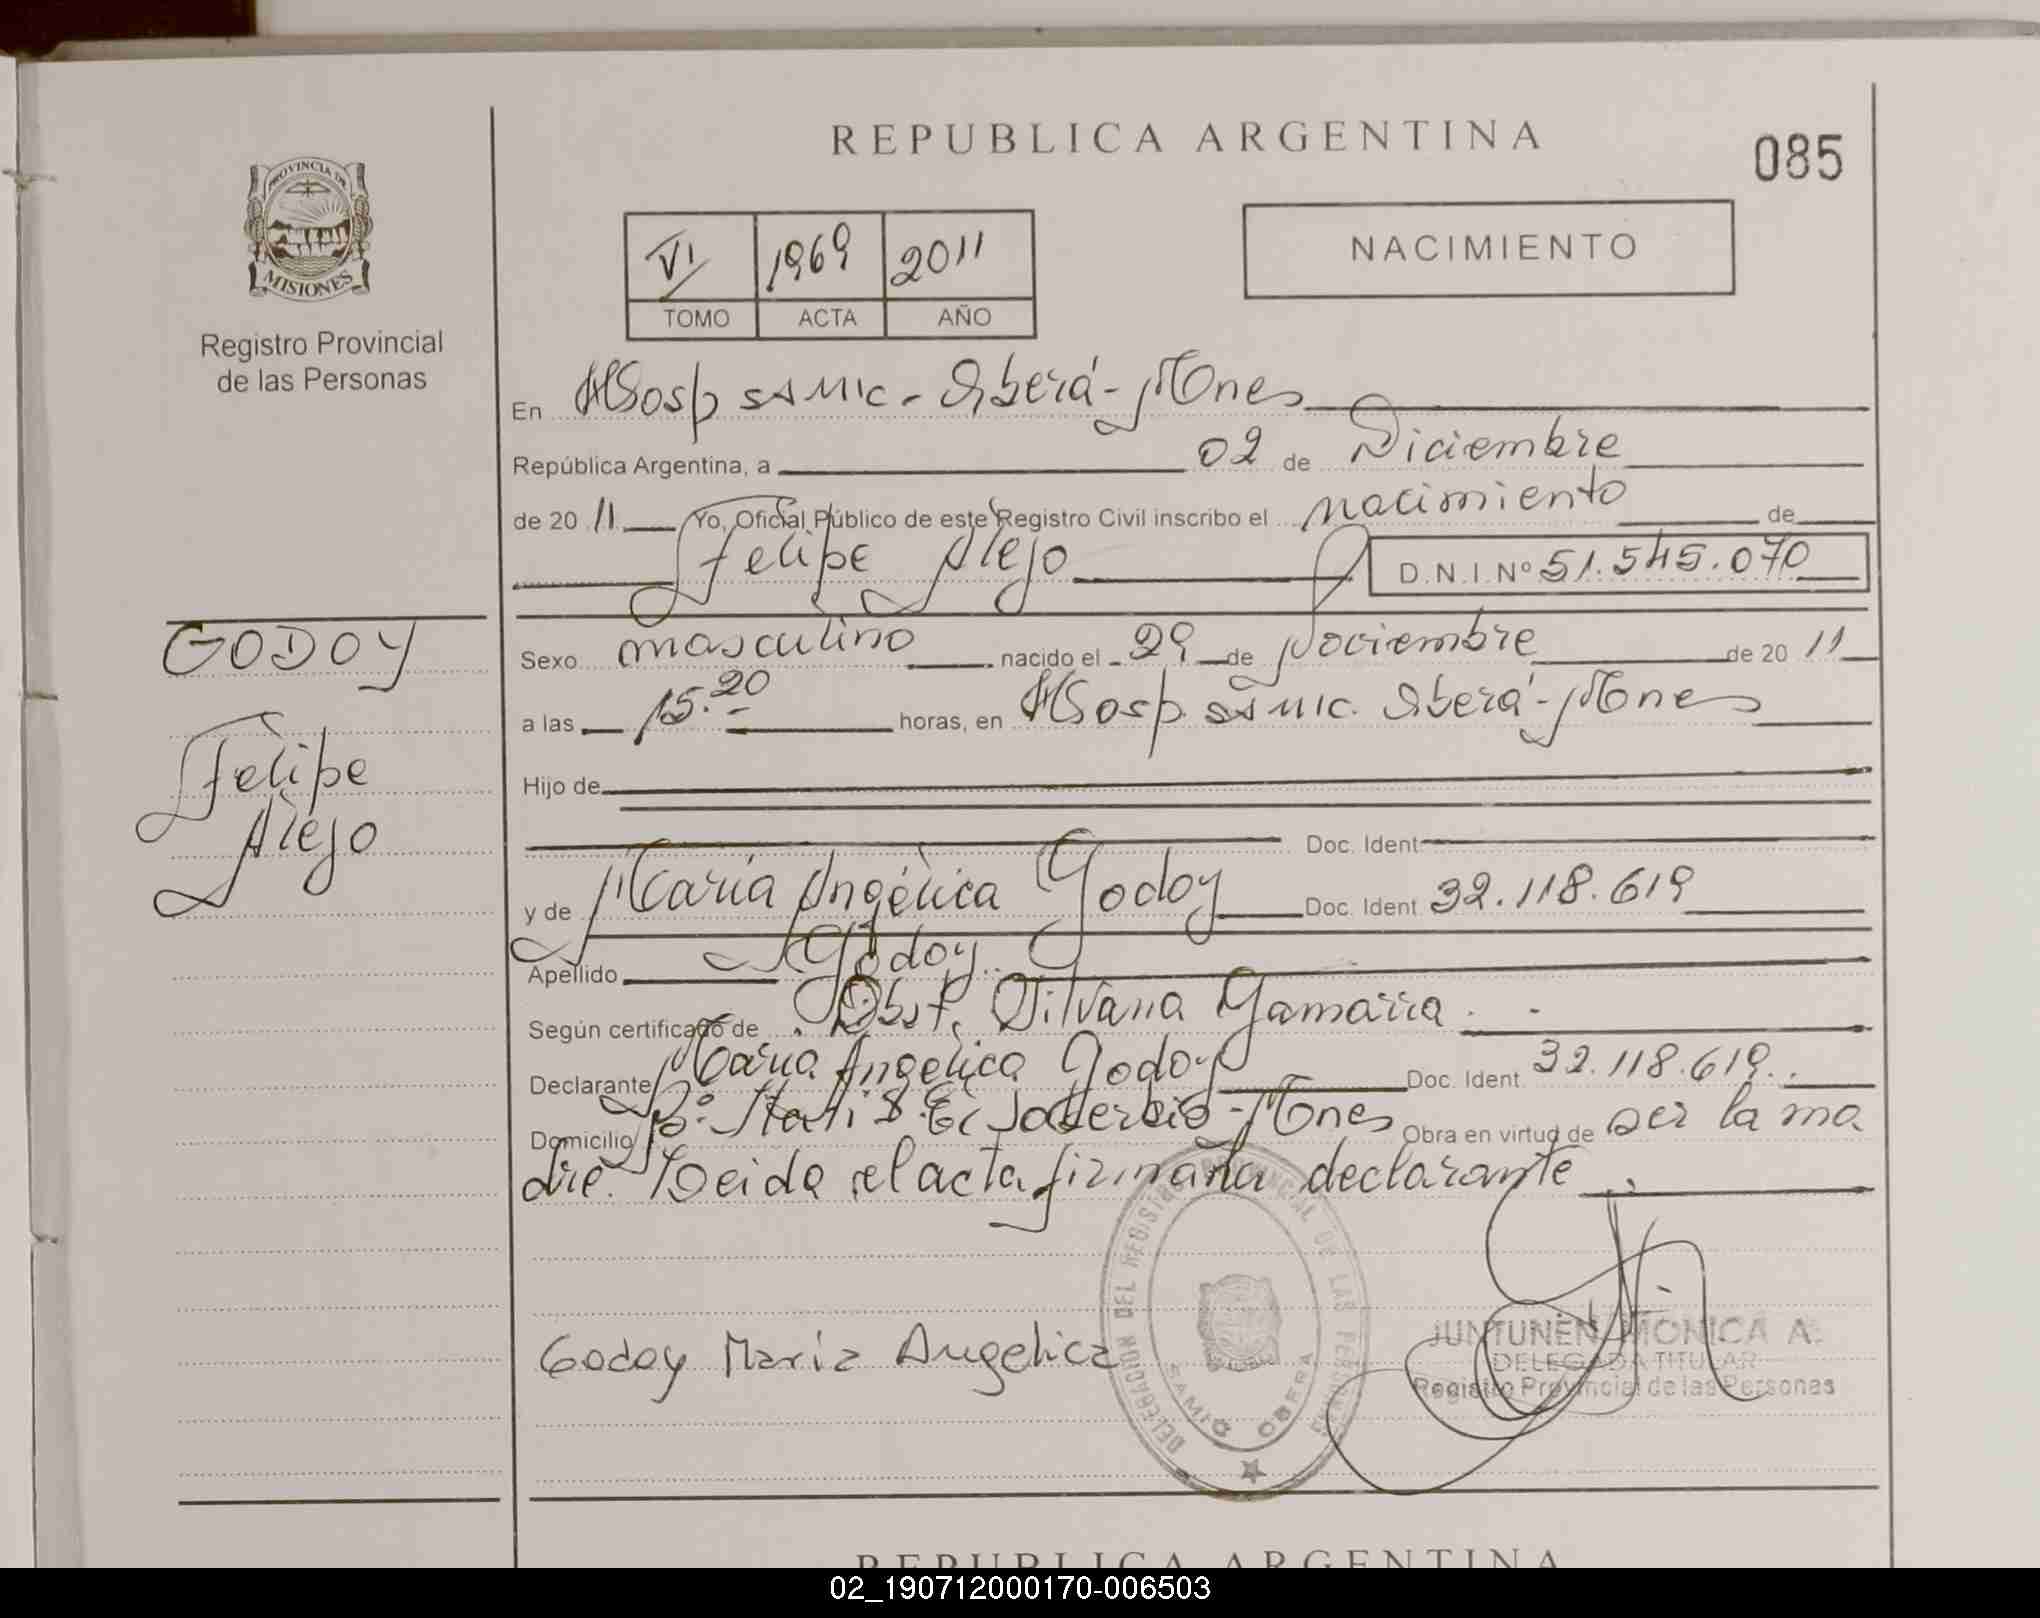 REPUBLICA ARGENTINA
085
PROVINCIA DE
MISIONES
Registro Provincial
de las Personas
VI 1969 2011
TOMO ACTA AÑO
NACIMIENTO
En Hosp SAMIC - Oberá - Mnes
República Argentina, a 02 de Diciembre
de 2011 Yo, Oficial Público de este Registro Civil inscribo el nacimiento de
Felipe Alejo
D.N.I. Nº 51.545.070
GODOY
Felipe
Alejo
Sexo masculino nacido el 29 de Noviembre de 2011
a las 15.20 horas, en Hosp. SAMIC. Oberá - Mnes
Hijo de
Doc. Ident
y de María Angélica Godoy Doc. Ident 32.118.619
Apellido Godoy
Según certificado de Obst. Silvana Gamarra
Declarante María Angélica Godoy Doc. Ident 32.118.619
Domicilio El Soberbio - Mnes Obra en virtud de ser la ma
dre. Leida el acta firma la declarante
Godoy Maria Angelica
DELEGACION DEL REGISTRO PROVINCIAL DE LAS PERSONAS
SAMIC OBERA
JUNTUNEN MONICA A.
DELEGADA TITULAR
Registro Provincial de las Personas
REPUBLICA ARGENTINA
02_190712000170-006503